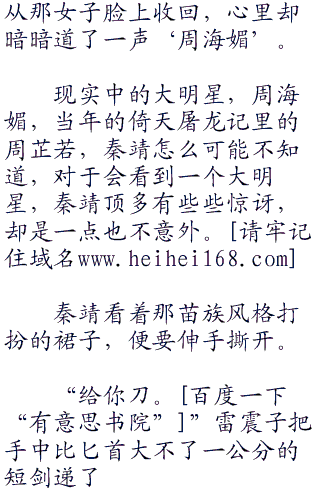 从那女子脸上收回，心里却
暗暗道了一声‘周海媚’。
现实中的大明星，周海
媚，当年的倚天屠龙记里的
周芷若，秦靖怎么可能不知
道，对于会看到一个大明
星，秦靖顶多有些些惊讶，
却是一点也不意外。[请牢记
住域名www.heihei168.com]
秦靖看着那苗族风格打
扮的裙子，便要伸手撕开。
“给你刀。[百度一下
“有意思书院”]”雷震子把
手中比匕首大不了一公分的
短剑递了